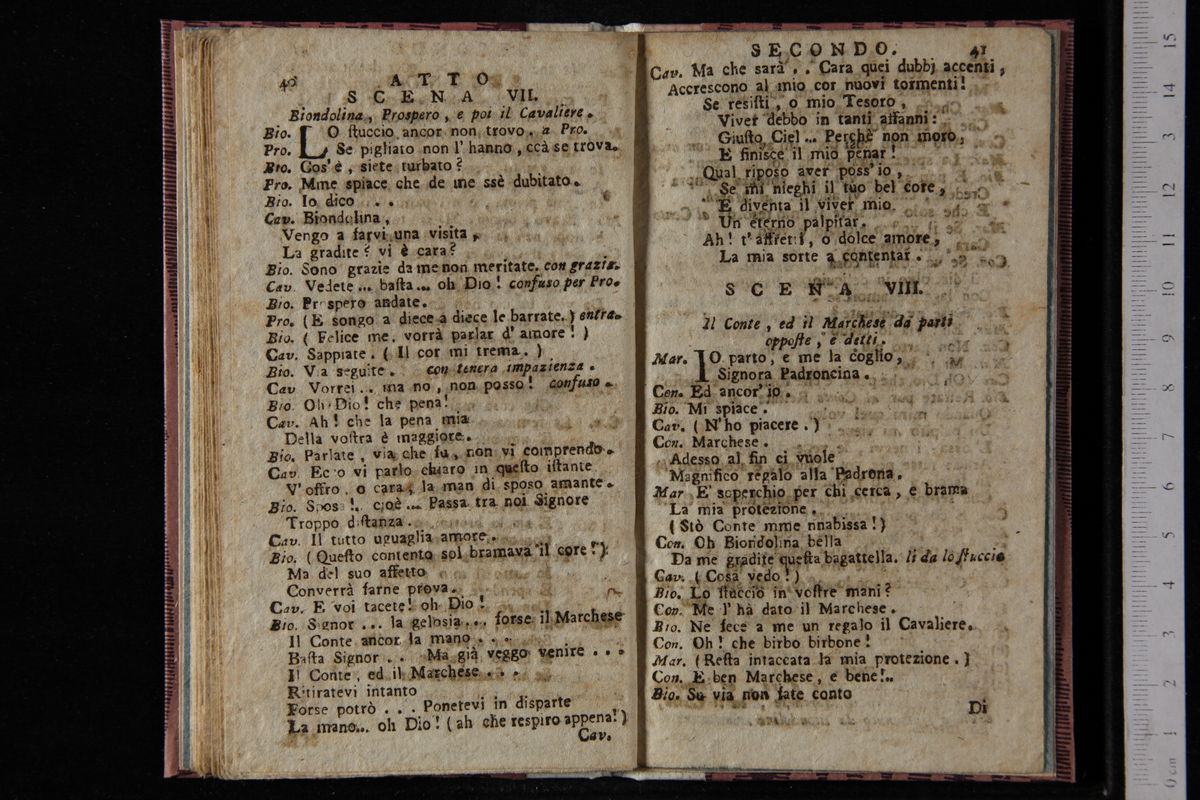 40
ATTO
SCENA VII.
Biondolina, Prospero, e poi il Cavaliere.
Bio. LO ſtuccio ancor non trovo. a Pro.
Pro. Se pigliato non l'hanno, ccà se trova.
Bio. Cos'è, siete turbato?
Pro. Mme spiace che de me ssè dubitato.
Bio. Io dico . . .
Cav. Biondolina,
Vengo a farvi una visita,
La gradite? vi è cara?
Bio. Sono grazie da me non meritate. con grazia.
Cav. Vedete... baſta... oh Dio! confuso per Pro.
Bio. Prospero andate.
Pro. (E songo a diece a diece le barrate.) entra.
Bio. (Felice me, vorrà parlar d'amore!)
Cav. Sappiate. (Il cor mi trema.)
Bio. Via seguite. con tenera impazienza.
Cav Vorrei .. ma no, non posso! confuso.
Bio. Oh Dio! che pena!
Cav. Ah! che la pena mia
Della voſtra è maggiore.
Bio. Parlate, via che fu, non vi comprendo.
Cav. Ecco vi parlo chiaro in queſto iſtante
V'offro, o cara, la man di sposo amante.
Bio. Sposa!. cioè... Passa tra noi Signore
Troppo diſtanza.
Cav. Il tutto uguaglia amore.
Bio. (Queſto contento sol bramava il core!)
Ma del suo affetto
Converrà farne prova.
Cav. E voi tacete! oh Dio!
Bio. Signor ... la gelosia... forse il Marchese
Il Conte ancor la mano . . .
Baſta Signor . . Ma già veggo venire . . .
Il Conte, ed il Marchese . . .
Ritiratevi intanto
Forse potrò . . . Ponetevi in disparte
La mano... oh Dio! (ah che respiro appena!)
Cav.
SECONDO. 41
Cav. Ma che sarà . . Cara quei dubbj accenti,
Accrescono al mio cor nuovi tormenti!
Se resiſti, o mio Tesoro,
Viver debbo in tanti affanni:
Giuſto Ciel... Perchè non moro,
E finisce il mio penar!
Qual riposo aver poss'io,
Se mi nieghi il tuo bel core,
E diventa il viver mio
Un eterno palpitar.
Ah! t'affretti, o dolce amore,
La mia sorte a contentar.
SCENA VIII.
Il Conte, ed il Marchese da parti
oppoſte, e detti.
Mar. IO parto, e me la coglio,
Signora Padroncina.
Con. Ed ancor'io.
Bio. Mi spiace.
Cav. (N'ho piacere.)
Con. Marchese.
Adesso al fin ci vuole
Magnifico regalo alla Padrona.
Mar E' soperchio per chi cerca, e brama
La mia protezione.
(Stò Conte mme nnabissa!)
Con. Oh Biondolina bella
Da me gradite queſta bagattella. li da lo ſtuccio
Cav. (Cosa vedo!)
Bio. Lo ſtuccio in voſtre mani?
Con. Me l'hà dato il Marchese.
Bio. Ne fece a me un regalo il Cavaliere.
Con. Oh! che birbo birbone!
Mar. (Reſta intaccata la mia protezione.)
Con. E ben Marchese, e bene!..
Bio. Su via non fate conto
Di